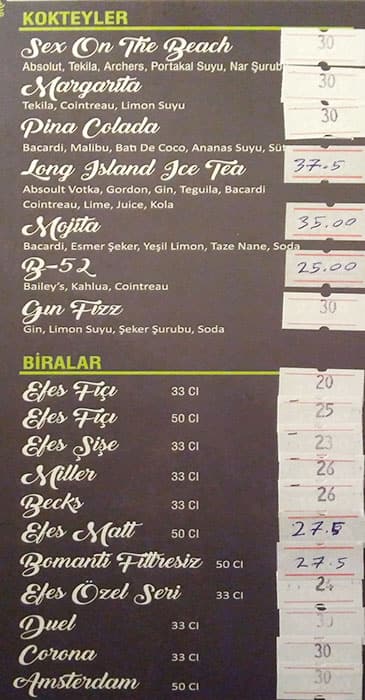 KOKTEYLER
Sex On The Beach 30
Absolut, Tekila, Archers, Portakal Suyu, Nar Şurub
Margarita 30
Tekila, Cointreau, Limon Suyu
Pina Colada 30
Bacardi, Malibu, Batı De Coco, Ananas Suyu, Süt
Long Island Ice Tea 37.5
Absoult Votka, Gordon, Gin, Teguila, Bacardi
Cointreau, Lime, Juice, Kola
Mojita 35.00
Bacardi, Esmer Şeker, Yeşil Limon, Taze Nane, Soda
B-52 25.00
Bailey's, Kahlua, Cointreau
Gın Fizz 30
Gin, Limon Suyu, Şeker Şurubu, Soda
BİRALAR
Efes Fıçı 33 Cl 20
Efes Fıçı 50 Cl 25
Efes Şişe 33 Cl 23
Miller 33 Cl 26
Becks 33 Cl 26
Efes Malt 50 Cl 27.5
Bomantı Filtresiz 50 Cl 27.5
Efes Özel Seri 33 Cl
Duel 33 Cl
Corona 33 Cl 30
Amsterdam 50 Cl 30